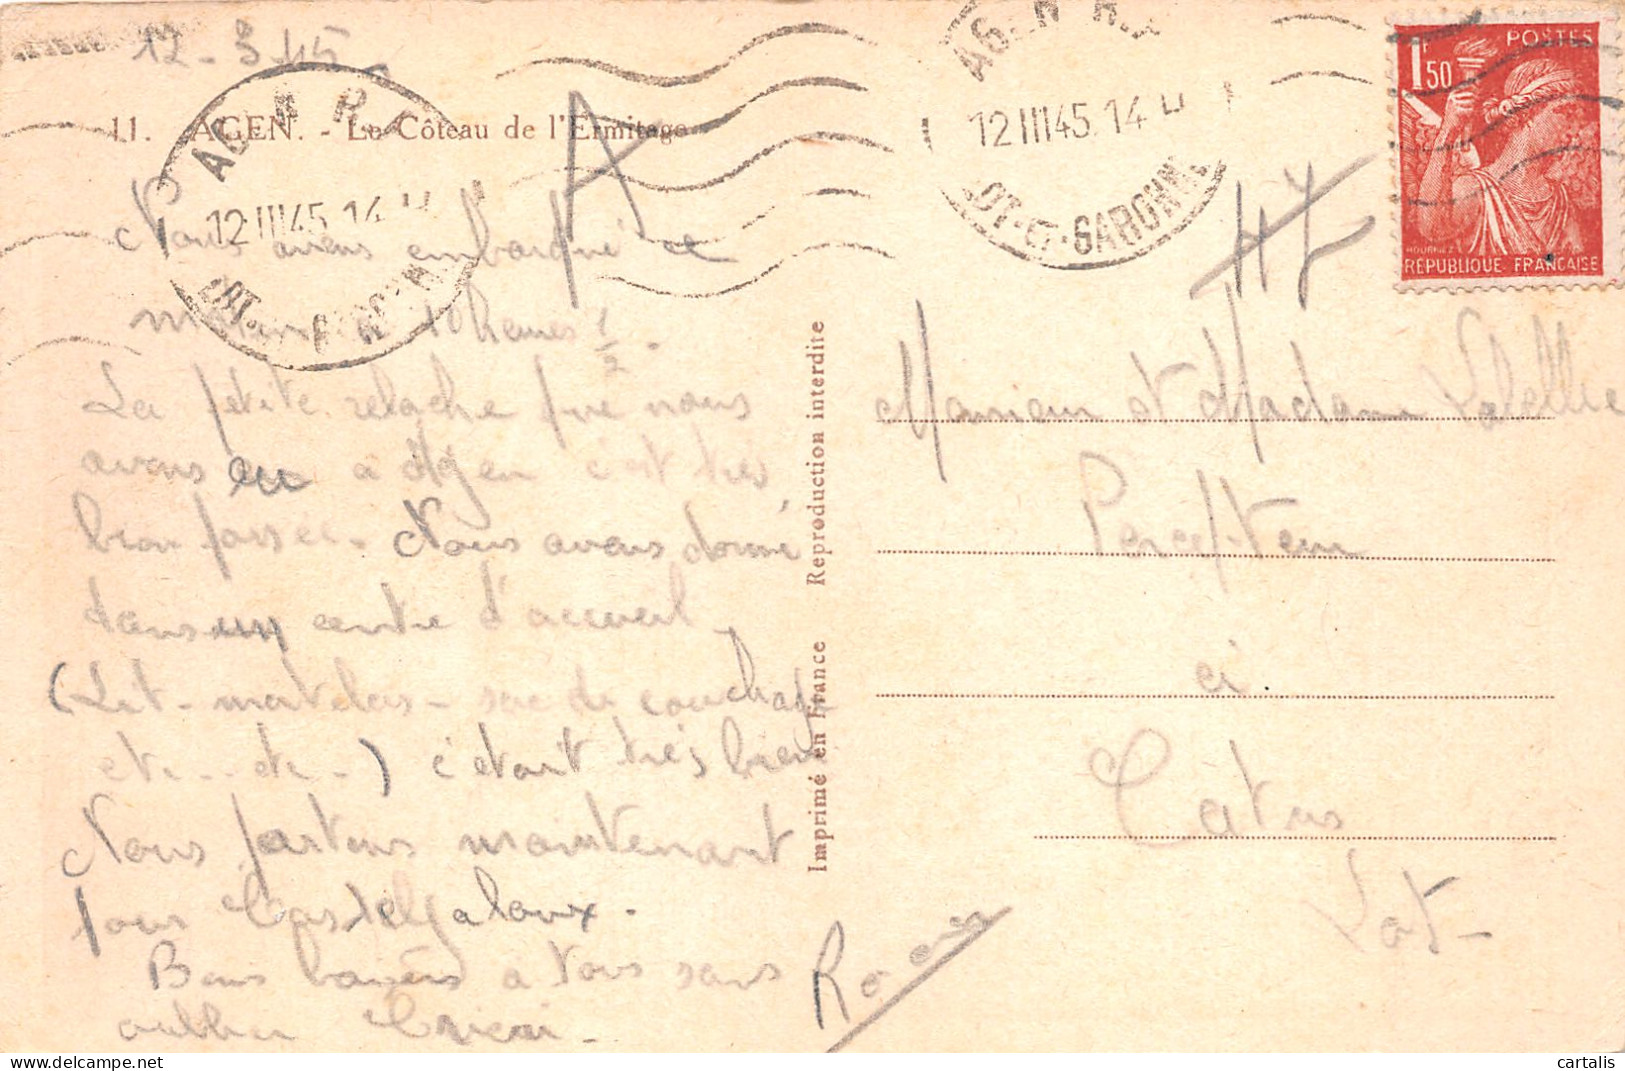 12-3-45
11. AGEN. - Le Côteau de l'Ermitage
Nous avons embarqué ce
matin à 10 heures 1/2.
La petite relache que nous
avons eu a Agen c'est très
bien passée. Nous avons dormi
dans un centre d'accueil
(Lit - matelas - sac de couchage
etc... etc.) c'était très bien
Nous partons maintenant
pour Castelgaloux.
Bons baisers a tous sans
oublier
Roger
Reproduction interdite
Imprimé en France
AGEN R.P.
12 III 45 14 H
LOT-ET-GARONNE
AGEN R.P.
12 III 45 14 H
LOT-ET-GARONNE
1F50
POSTES
RÉPUBLIQUE FRANÇAISE
Monsieur et Madame
Percepteur
Catus
Lot-
cartalis